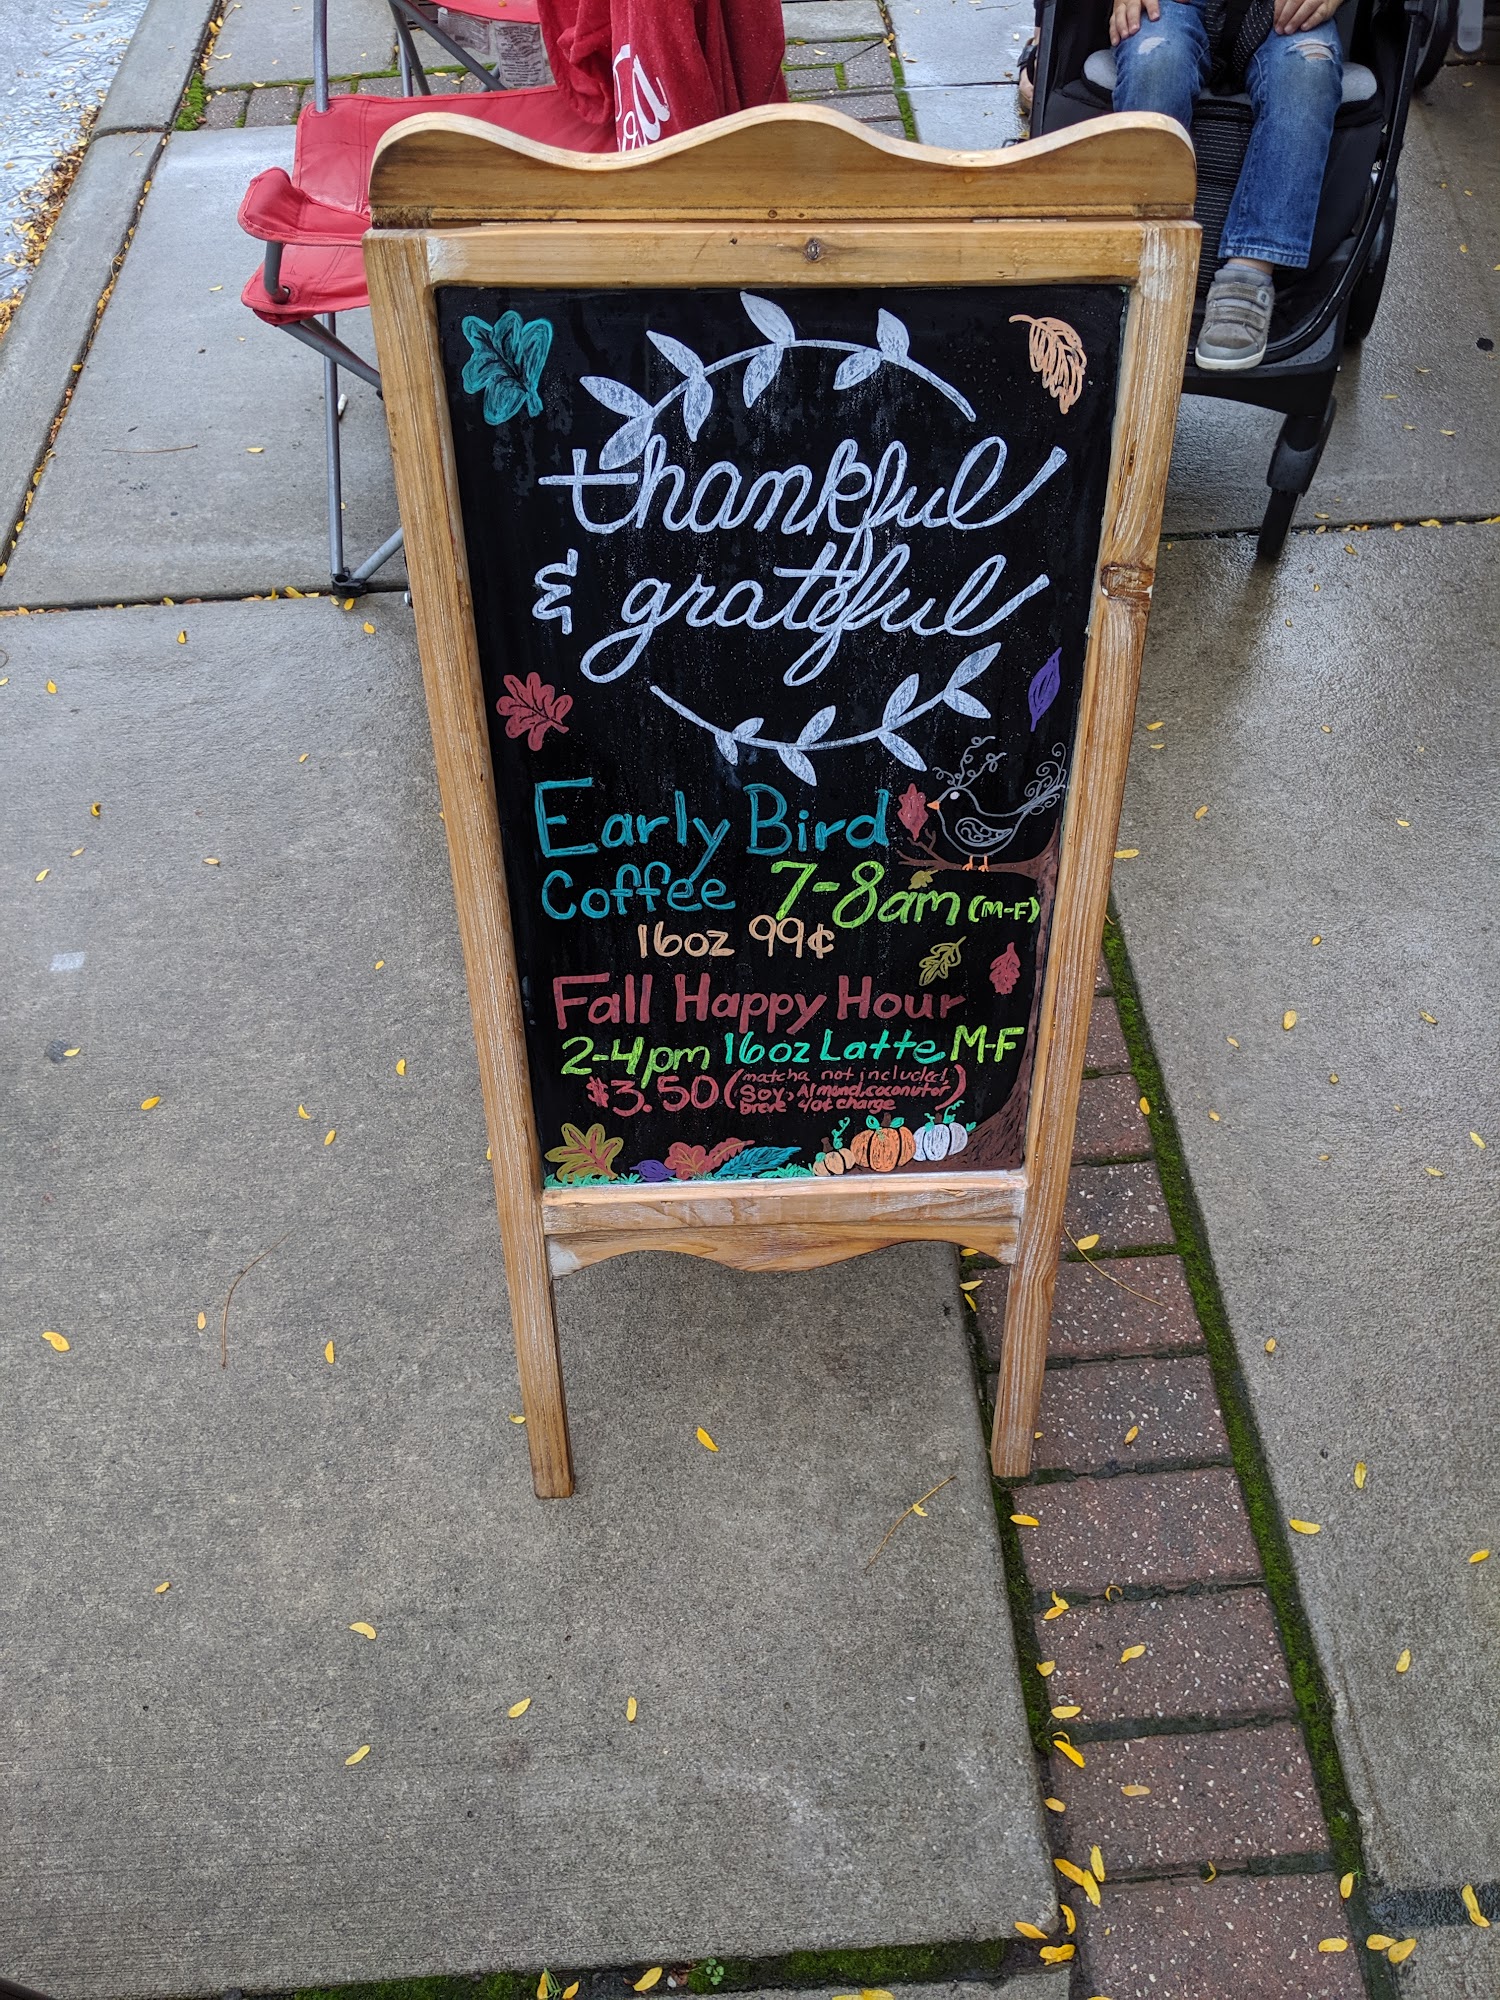 thankful
& grateful
Early Bird
Coffee 7-8am (M-F)
16oz 99¢
Fall Happy Hour
2-4pm 16oz Latte M-F
$3.50 (matcha not included,
Soy, Almond, coconut or
Breve 40¢ charge)